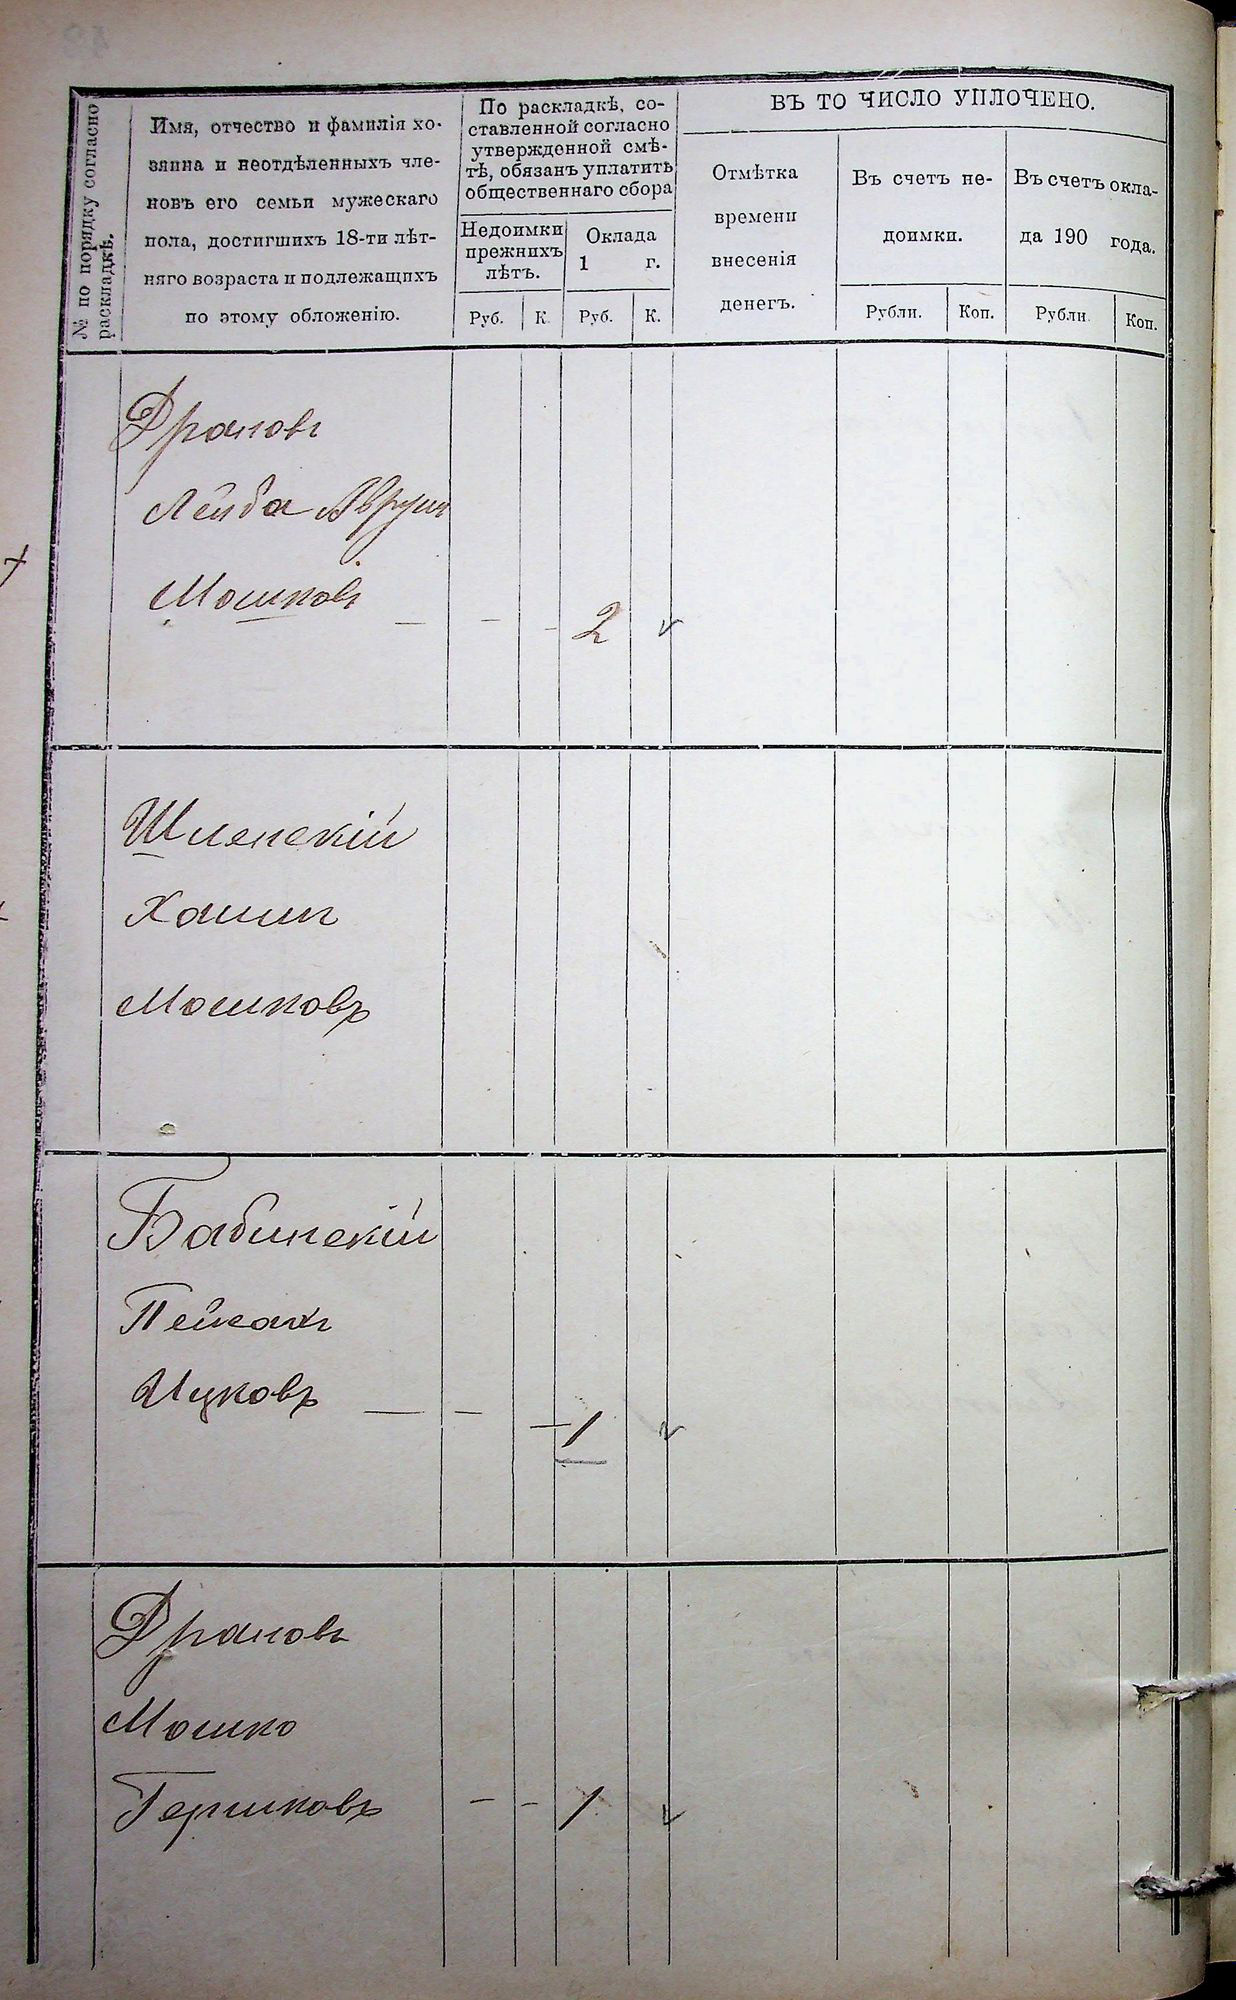 № по порядку согласно
раскладкѣ.
Имя, отчество и фамилія хо-
зяина и неотдѣленныхъ чле-
новъ его семьи мужескаго
пола, достигшихъ 18-ти лѣт-
няго возраста и подлежащихъ
по этому обложенію.
По раскладкѣ, со-
ставленной согласно
утвержденной смѣ-
тѣ, обязанъ уплатить
общественнаго сбора
Недоимки
прежнихъ
лѣтъ.
Оклада
1 г.
Руб. К. Руб. К.
ВЪ ТО ЧИСЛО УПЛОЧЕНО.
Отмѣтка
времени
внесенія
денегъ.
Въ счетъ не-
доимки.
Рубли. Коп.
Въ счетъ окла-
да 190 года.
Рубли. Коп.
Драповъ
Лейба Аврум
Мошковъ - - - 2
Шленскій
Хаимъ
Мошковъ
Бабинскій
Пейсахъ
Ицковъ - - - 1
Драповъ
Мошко
Гершковъ - - 1